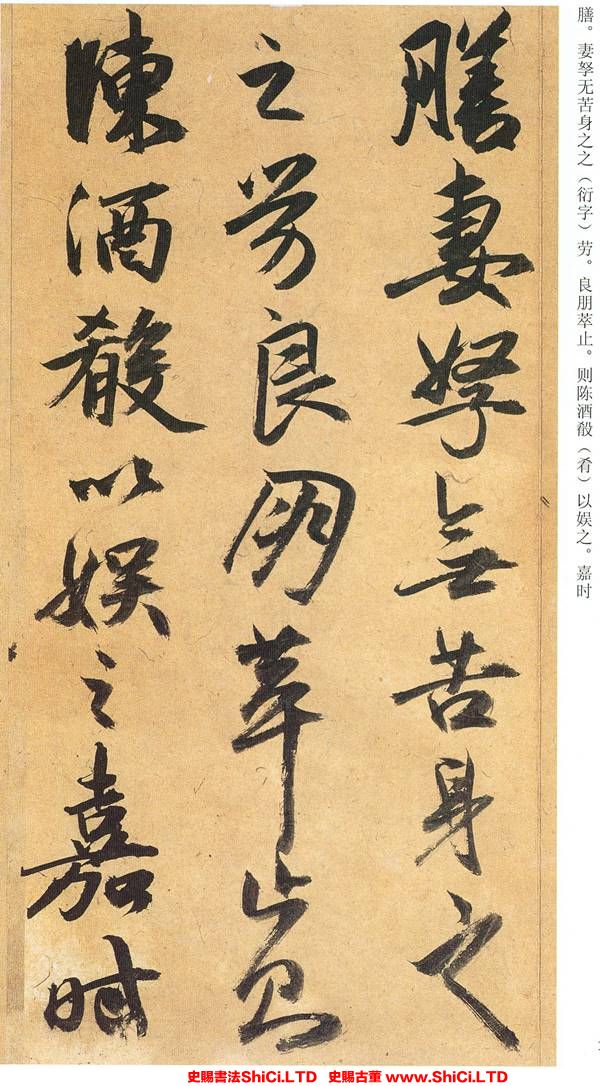 膳妻孥無苦身之
之勞良朋萃止則
陳酒殽以娛之嘉時
膳。妻孥无苦身之之（衍字）劳。良朋萃止。则陈酒殽（肴）以娱之。嘉时
史賜書法ShiCi.LTD 史賜古董 www.ShiCi.LTD